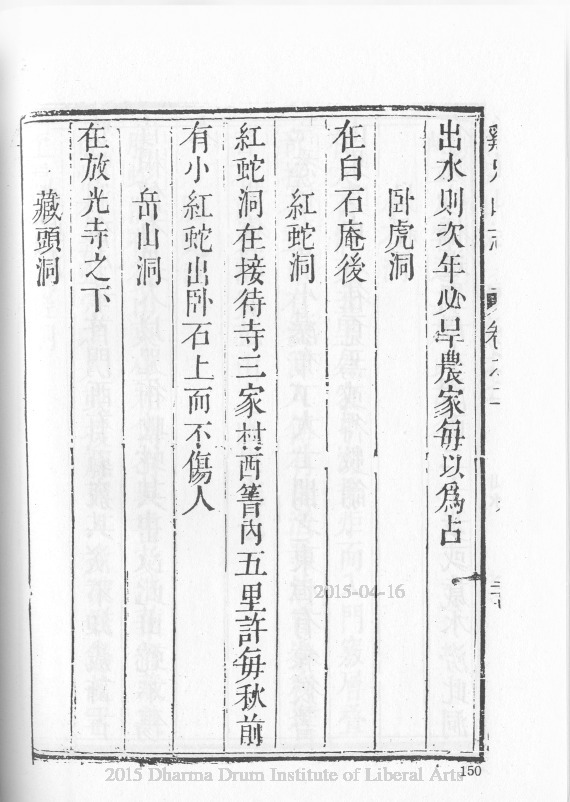 雞足山志　卷之二
出水則次年必旱農家每以為占
卧虎洞
在白石庵後
紅蛇洞
紅蛇洞在接待寺三家村西箐內五里許每秋前
有小紅蛇出卧石上而不傷人
岳山洞
在放光寺之下
藏頭洞
2015-04-16
150
2015 Dharma Drum Institute of Liberal Arts